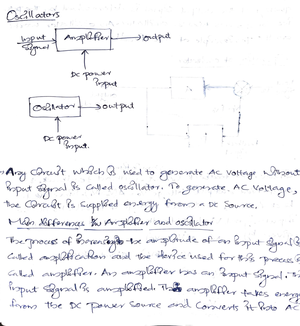 Oscillators
Input Signal
Amplifier
output
DC power Input
Oscillator
output
DC power Input.
Any Circuit which is used to generate AC voltage without
Input signal is called oscillator. To generate AC voltage,
the Circuit is supplied energy from a DC Source.
Main differences Amplifier and oscillator
The process of Increasing the amplitude of an Input signal is
called amplification and the device used for this process is
called amplifier. An amplifier has an Input signal, the
Input signal is amplified. The amplifier takes energy
from the DC power Source and Converts it into AC